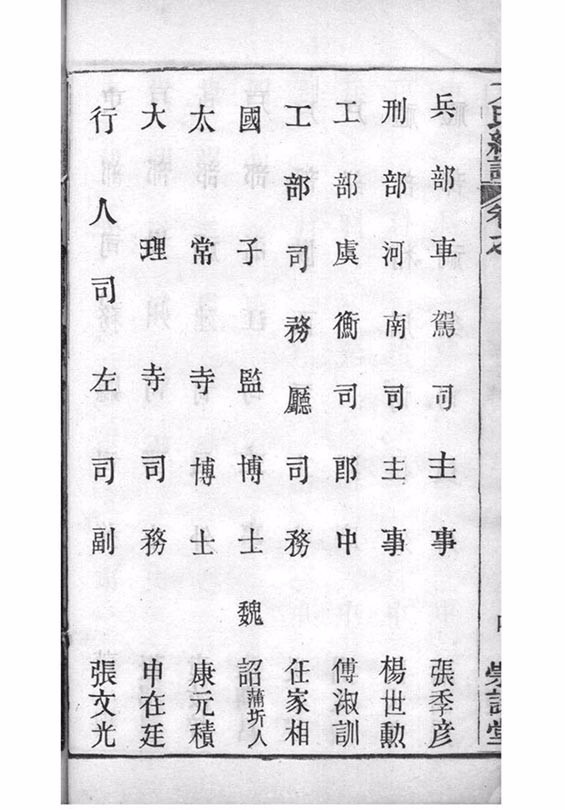 兵部車駕司主事 張季彦
刑部河南司主事 楊世勲
工部虞衡司郎中 傅淑訓
工部司務廳司務 任家相
國子監博士魏 詔蒲圻人
太常寺博士 康元積
大理寺司務 申在廷
行人司左司副 張文光